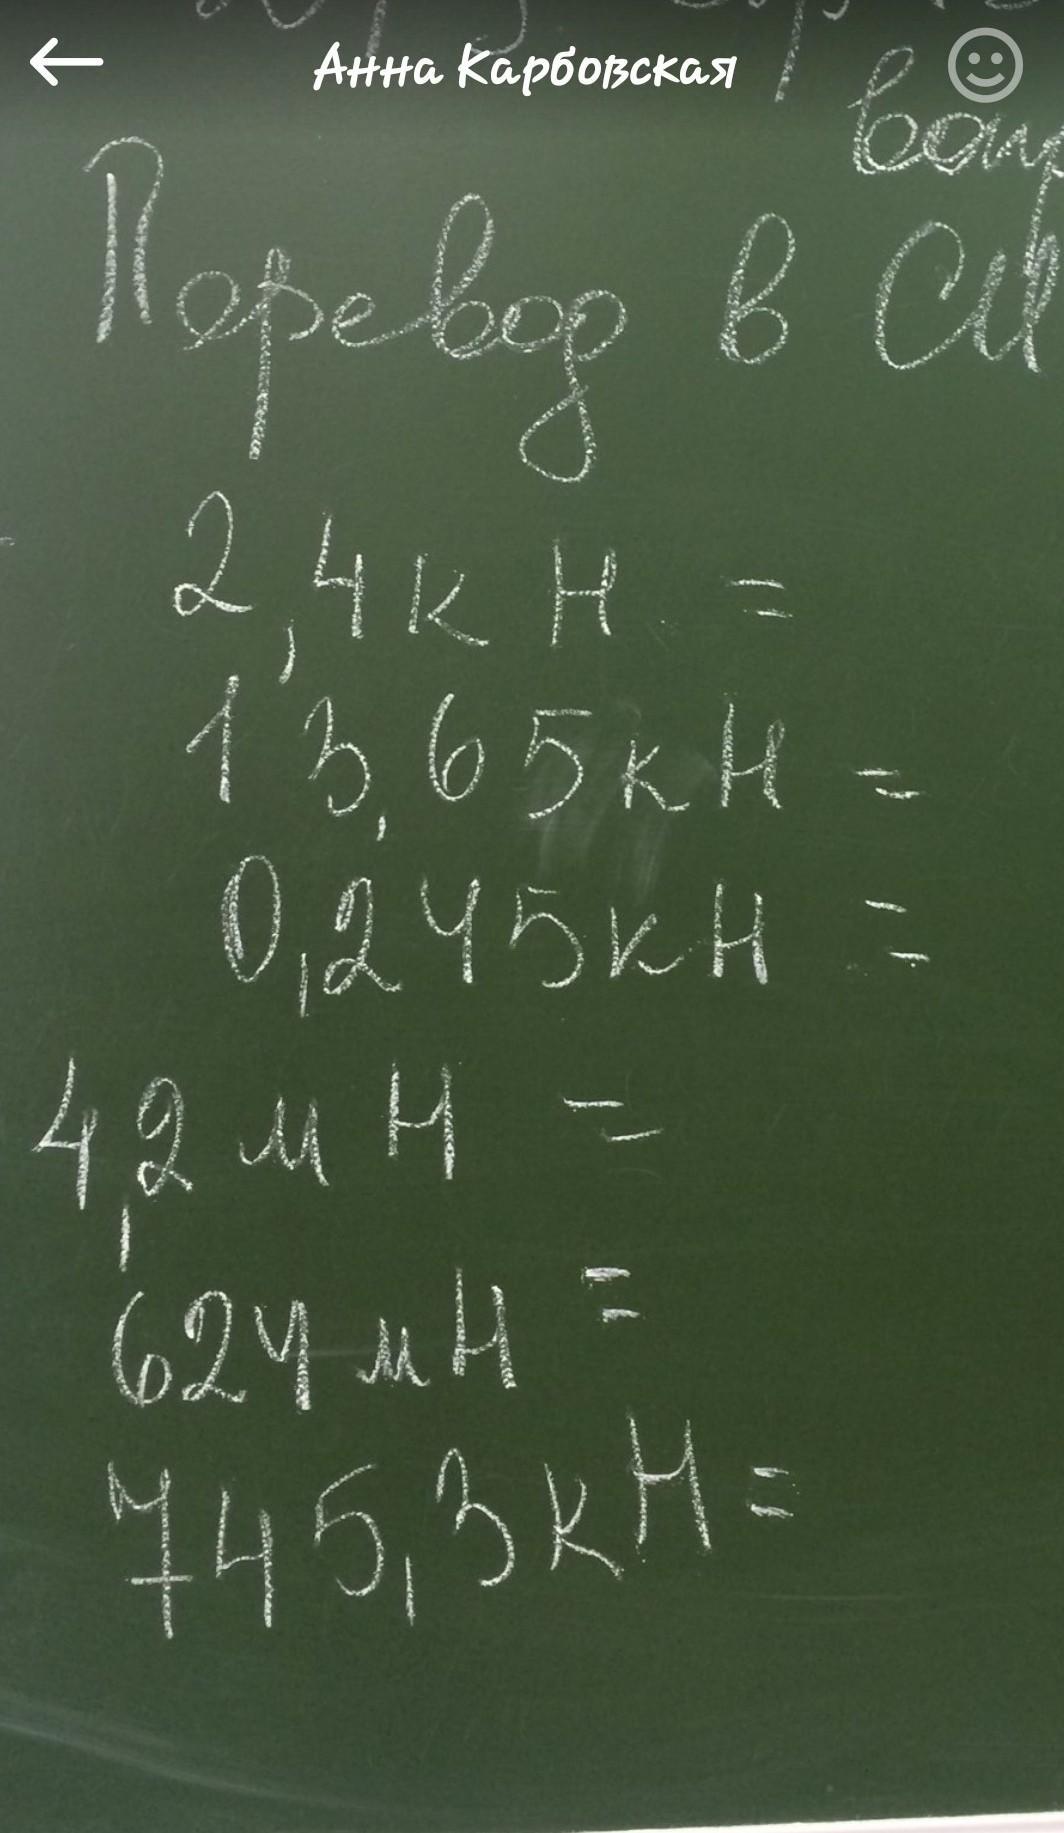 Анна Карбовская
Перевод в СИ
2,4кН =
13,65кН =
0,245кН =
4,2мН =
624мН =
745,3кН=